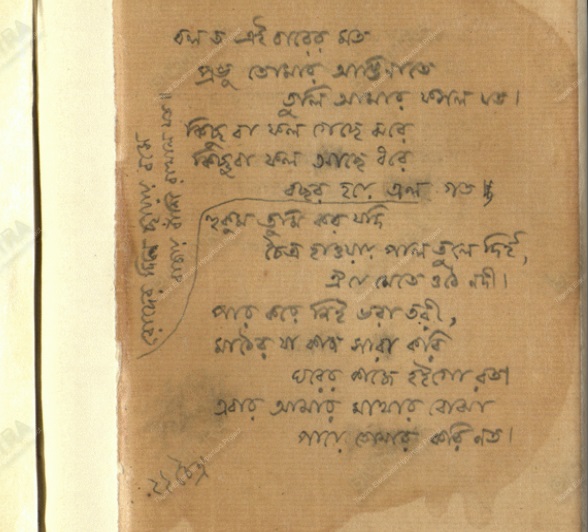 ফলাও এইবারের মত
প্রভু তোমার আঙিনাতে
তুলি আমার ফসল যত।
কিছু বা ফল গেছে মরে
কিছু বা ফল আছে ধরে
বছর হয়ে এল গত।
রোদের দিনে ছায়ায় বসে
বাজায় বাঁশি রাখাল যত॥
হুকুম তুমি কর যদি
চৈত্র হাওয়ায় পাল তুলে দিই,
ঐ যে মেতে ওঠে নদী।
পার করে নিই ভরা তরী,
মাঠের যা কাজ সারা করি
ঘরের কাজে হই গো রত।
এবার আমার মাথার বোঝা
পায়ে তোমার করি নত।
চৈত্র